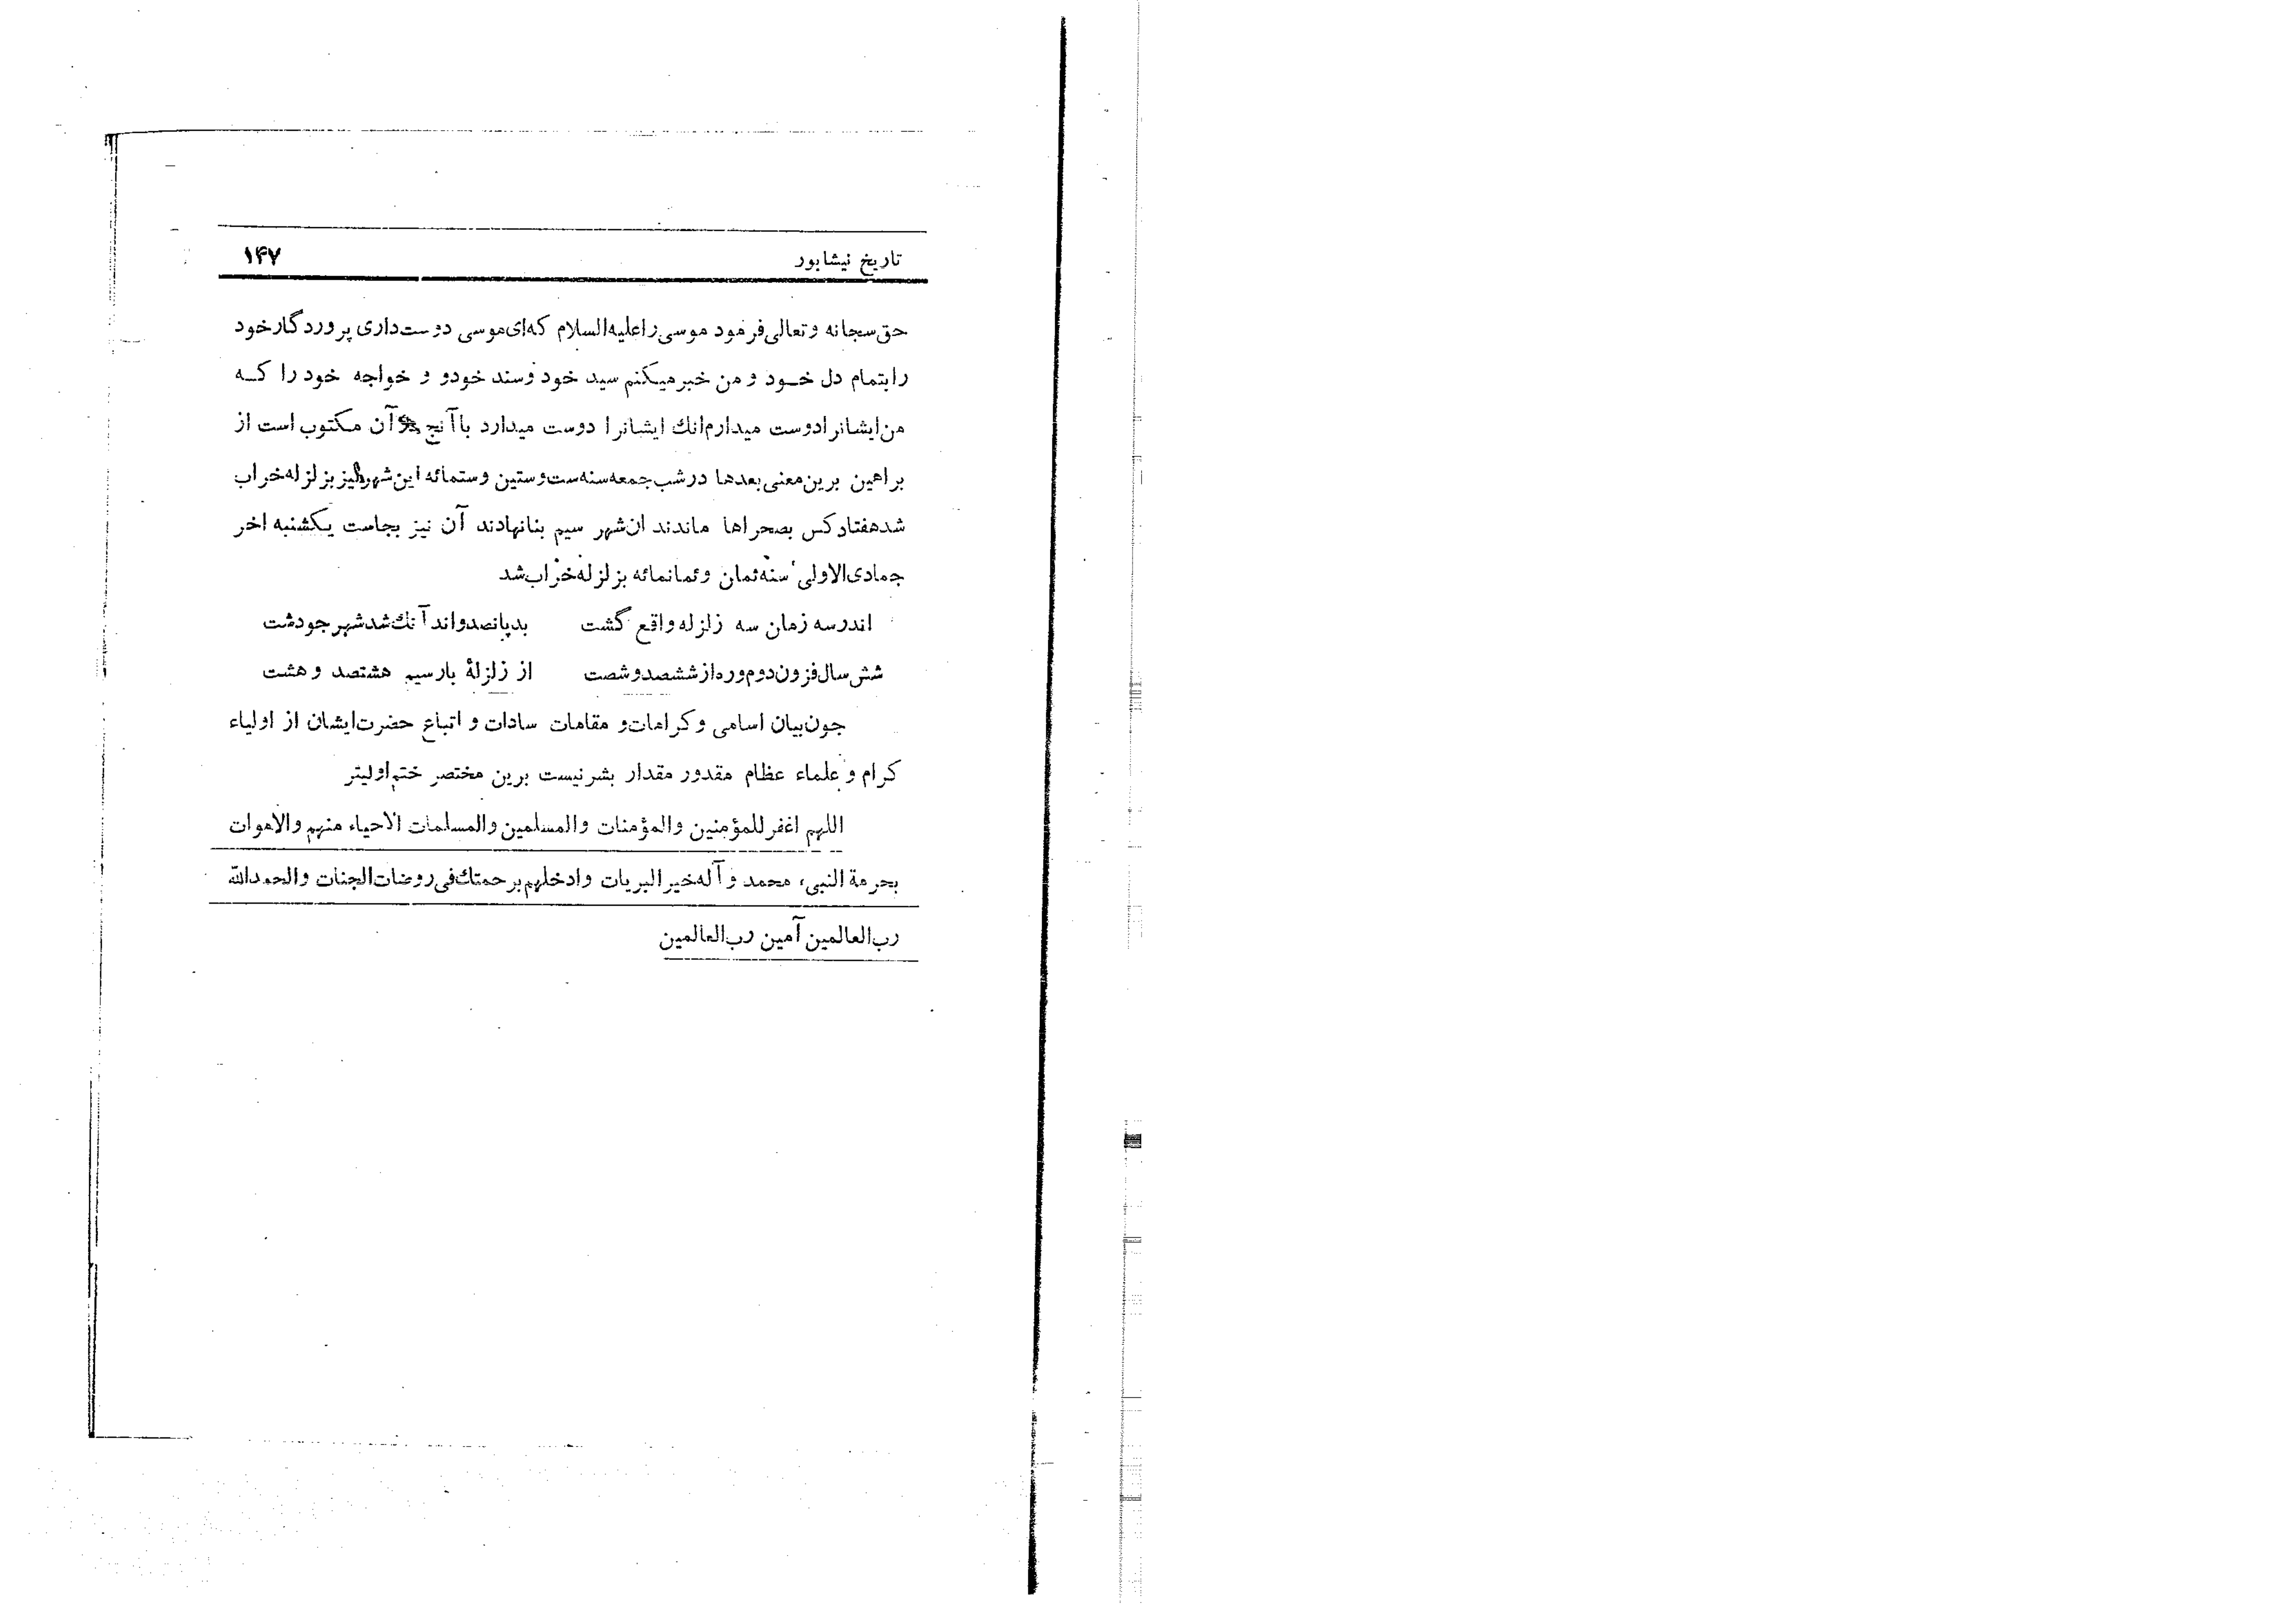 تاریخ نیشابور ۱۴۷
حق سبحانه و تعالی فرمود موسی را علیه السلام که ای موسی دوست داری پروردگار خود
را بتمام دل خود و من خبر میکنم سید خود و سند خود و و خواجه خود را که
من ایشانرا دوست میدارم انك ایشانرا دوست میدارد با آنچ آن مکتوب است از
براهین برین معنی بعدها در شب جمعه سنه ست و ستین و ستمائه این شهر نیز بزلزله خراب
شد هفتاد کس بصحراها ماندند ان شهر سیم بنا نهادند آن نیز بجاست یکشنبه اخر
جمادی الاولی سنه ثمان و ثمانمائه بزلزله خراب شد
اندر سه زمان سه زلزله واقع گشت بد پانصد و اند آنك شد شهر جو دشت
شش سال فزون دوم وره از ششصد و شصت از زلزلهٔ بار سیم هشتصد و هشت
جون بیان اسامی و کرامات و مقامات سادات و اتباع حضرت ایشان از اولیاء
کرام و علماء عظام مقدور مقدار بشر نیست برین مختصر ختم اولیتر
اللهم اغفر للمؤمنین والمؤمنات والمسلمین والمسلمات الاحیاء منهم والاموات
بحرمة النبی، محمد و آله خیر البریات وادخلهم برحمتك فی روضات الجنات والحمدالله
رب العالمین آمین رب العالمین